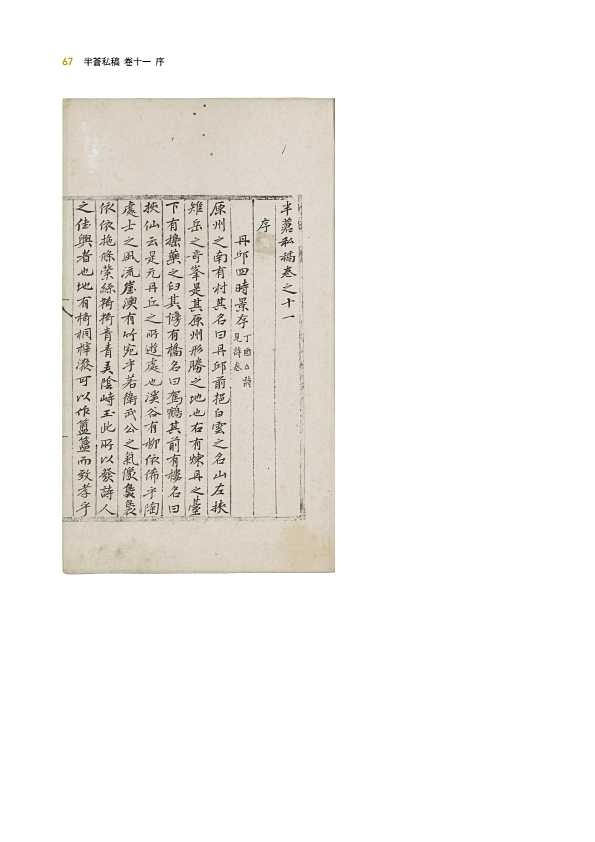 67 半蒼私稿 卷十一 序
半蒼私稿卷之十一
序
丹邱四時景序 丁酉 詩
見詩卷
原州之南有村其名曰丹邱前挹白雲之名山左挾
雉岳之奇峯是其原州形勝之地也右有煉丹之臺
下有擣藥之臼其傍有橋名曰駕鶴其前有樓名曰
挾仙云是元丹丘之所遊處也溪谷有柳依俙乎陶
處士之風流崖澳有竹宛乎若衛武公之氣像裊裊
依依拖條縈絲猗猗青青美陰峙玉此所以發詩人
之佳興者也地有椅桐梓漆可以作簠簋而致孝乎